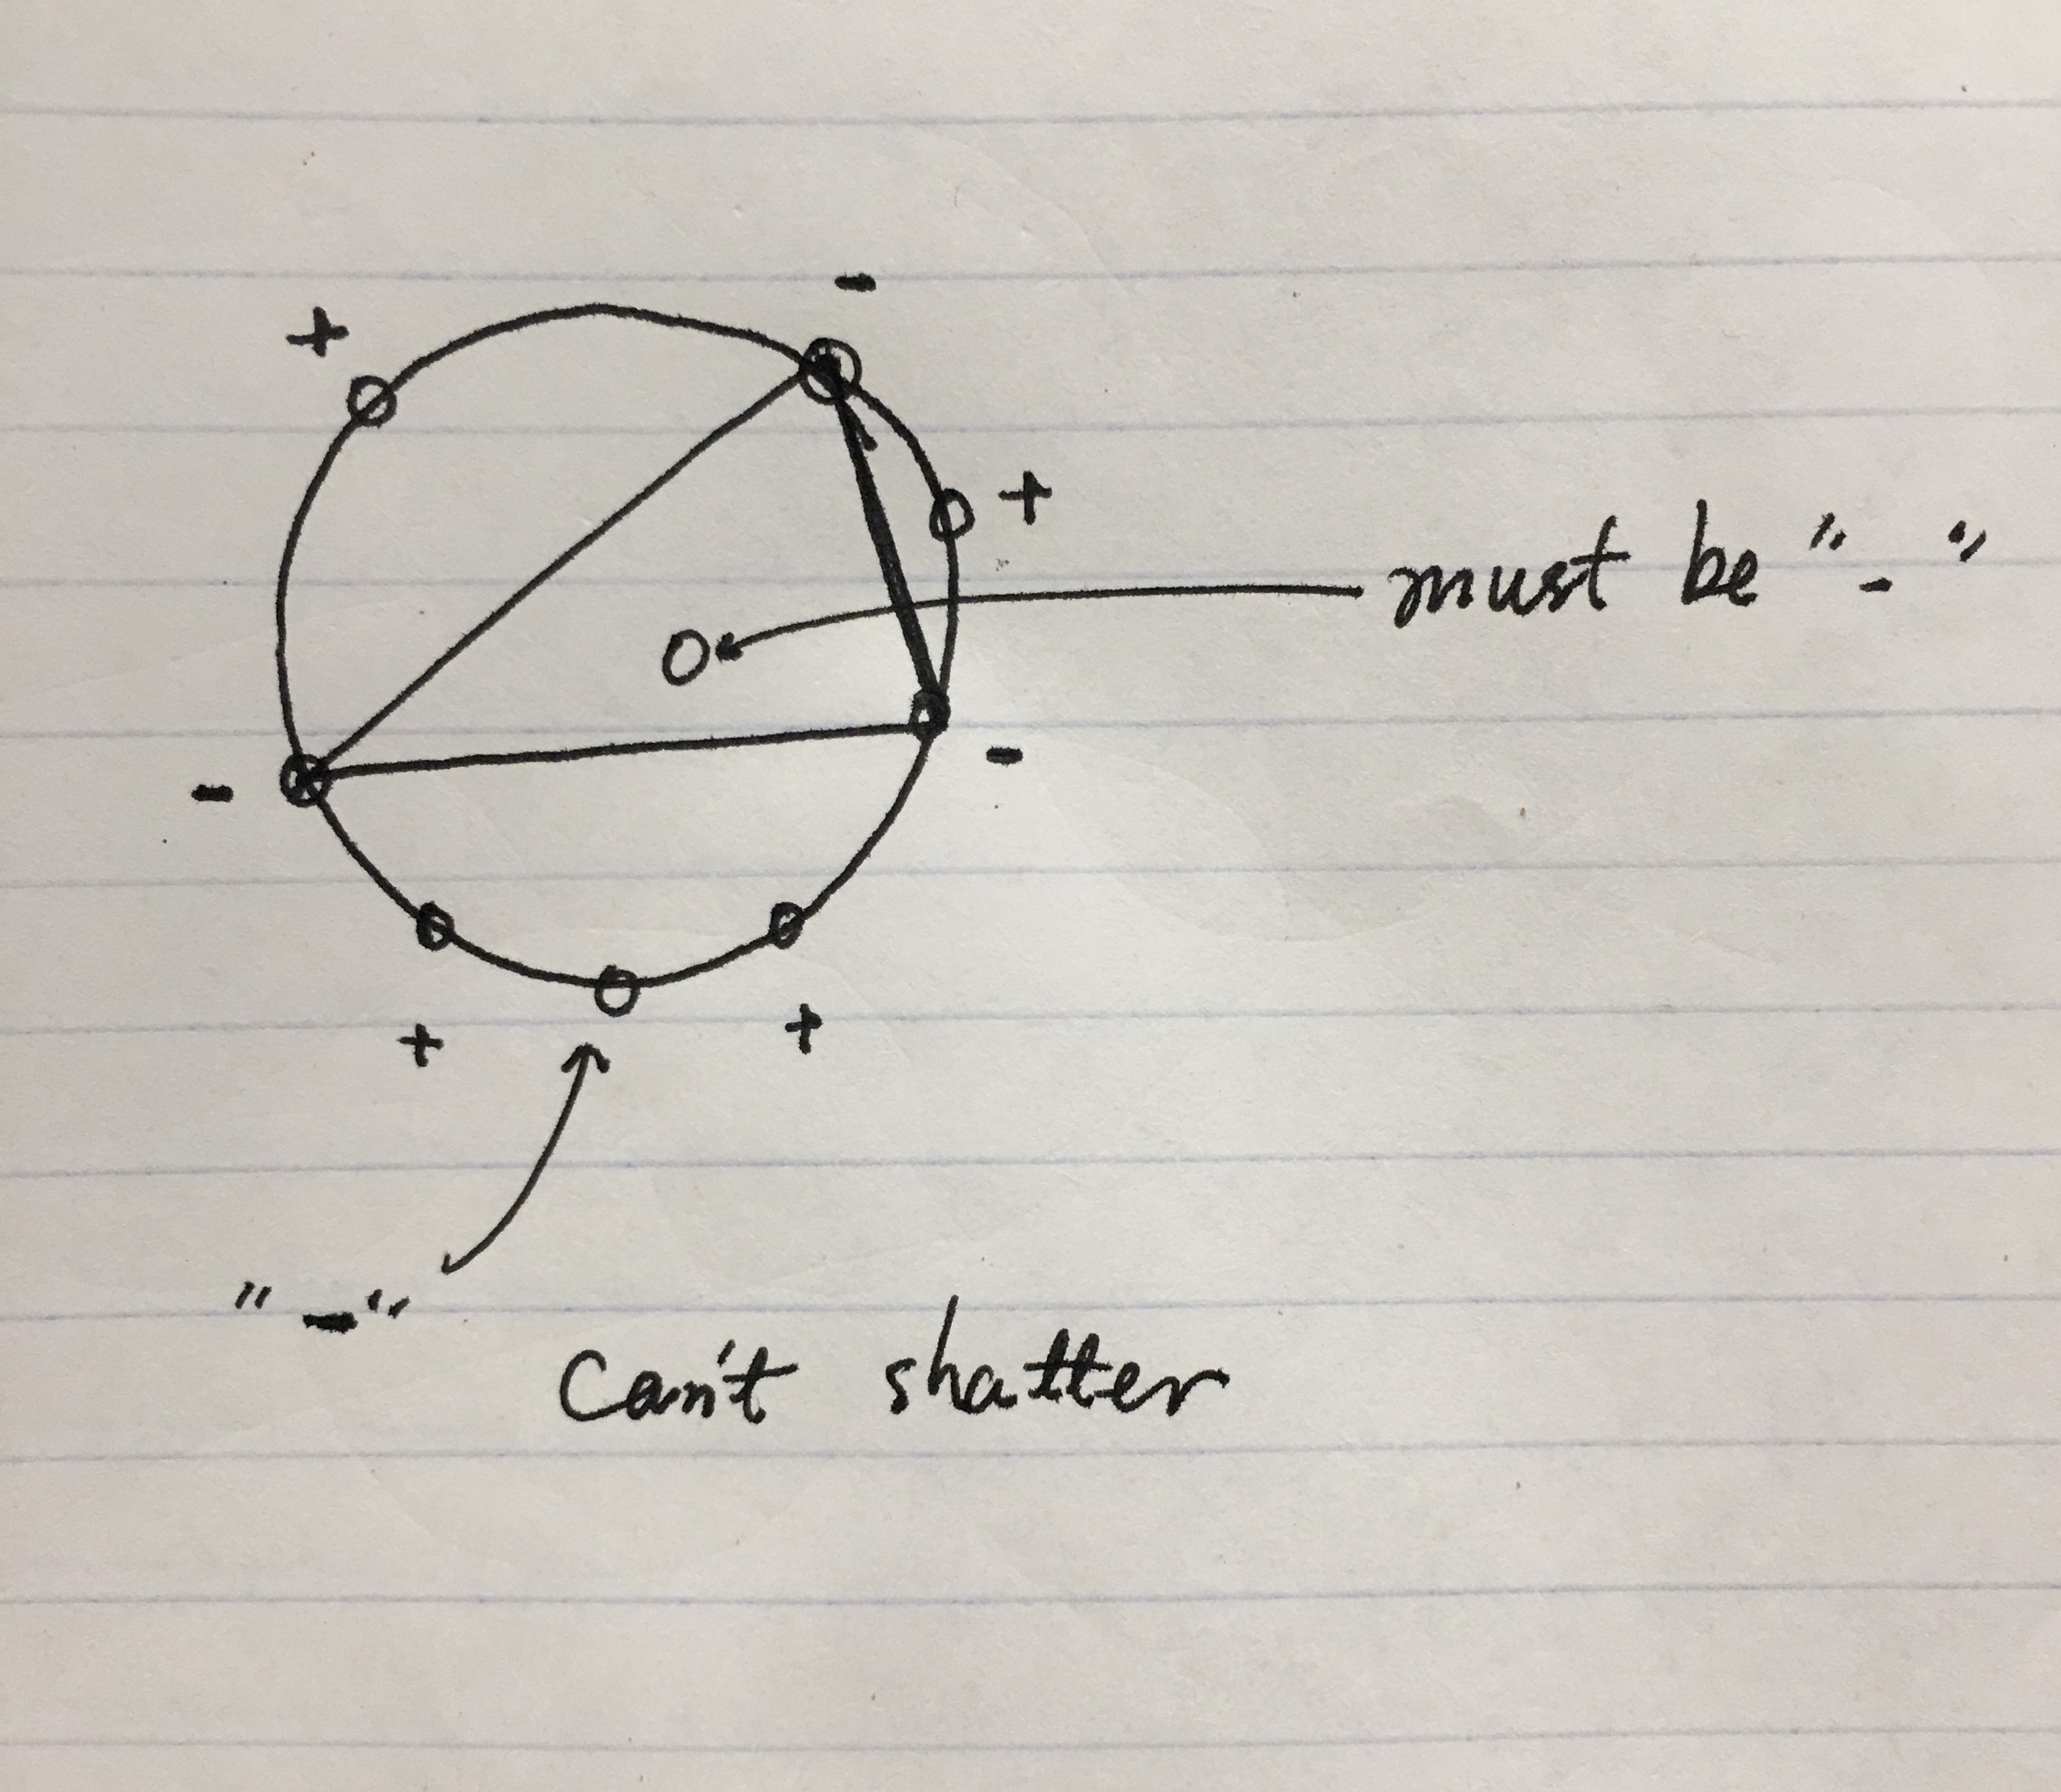 -
+
+
must be "-"
-
-
+ +
"-"
Can't shatter